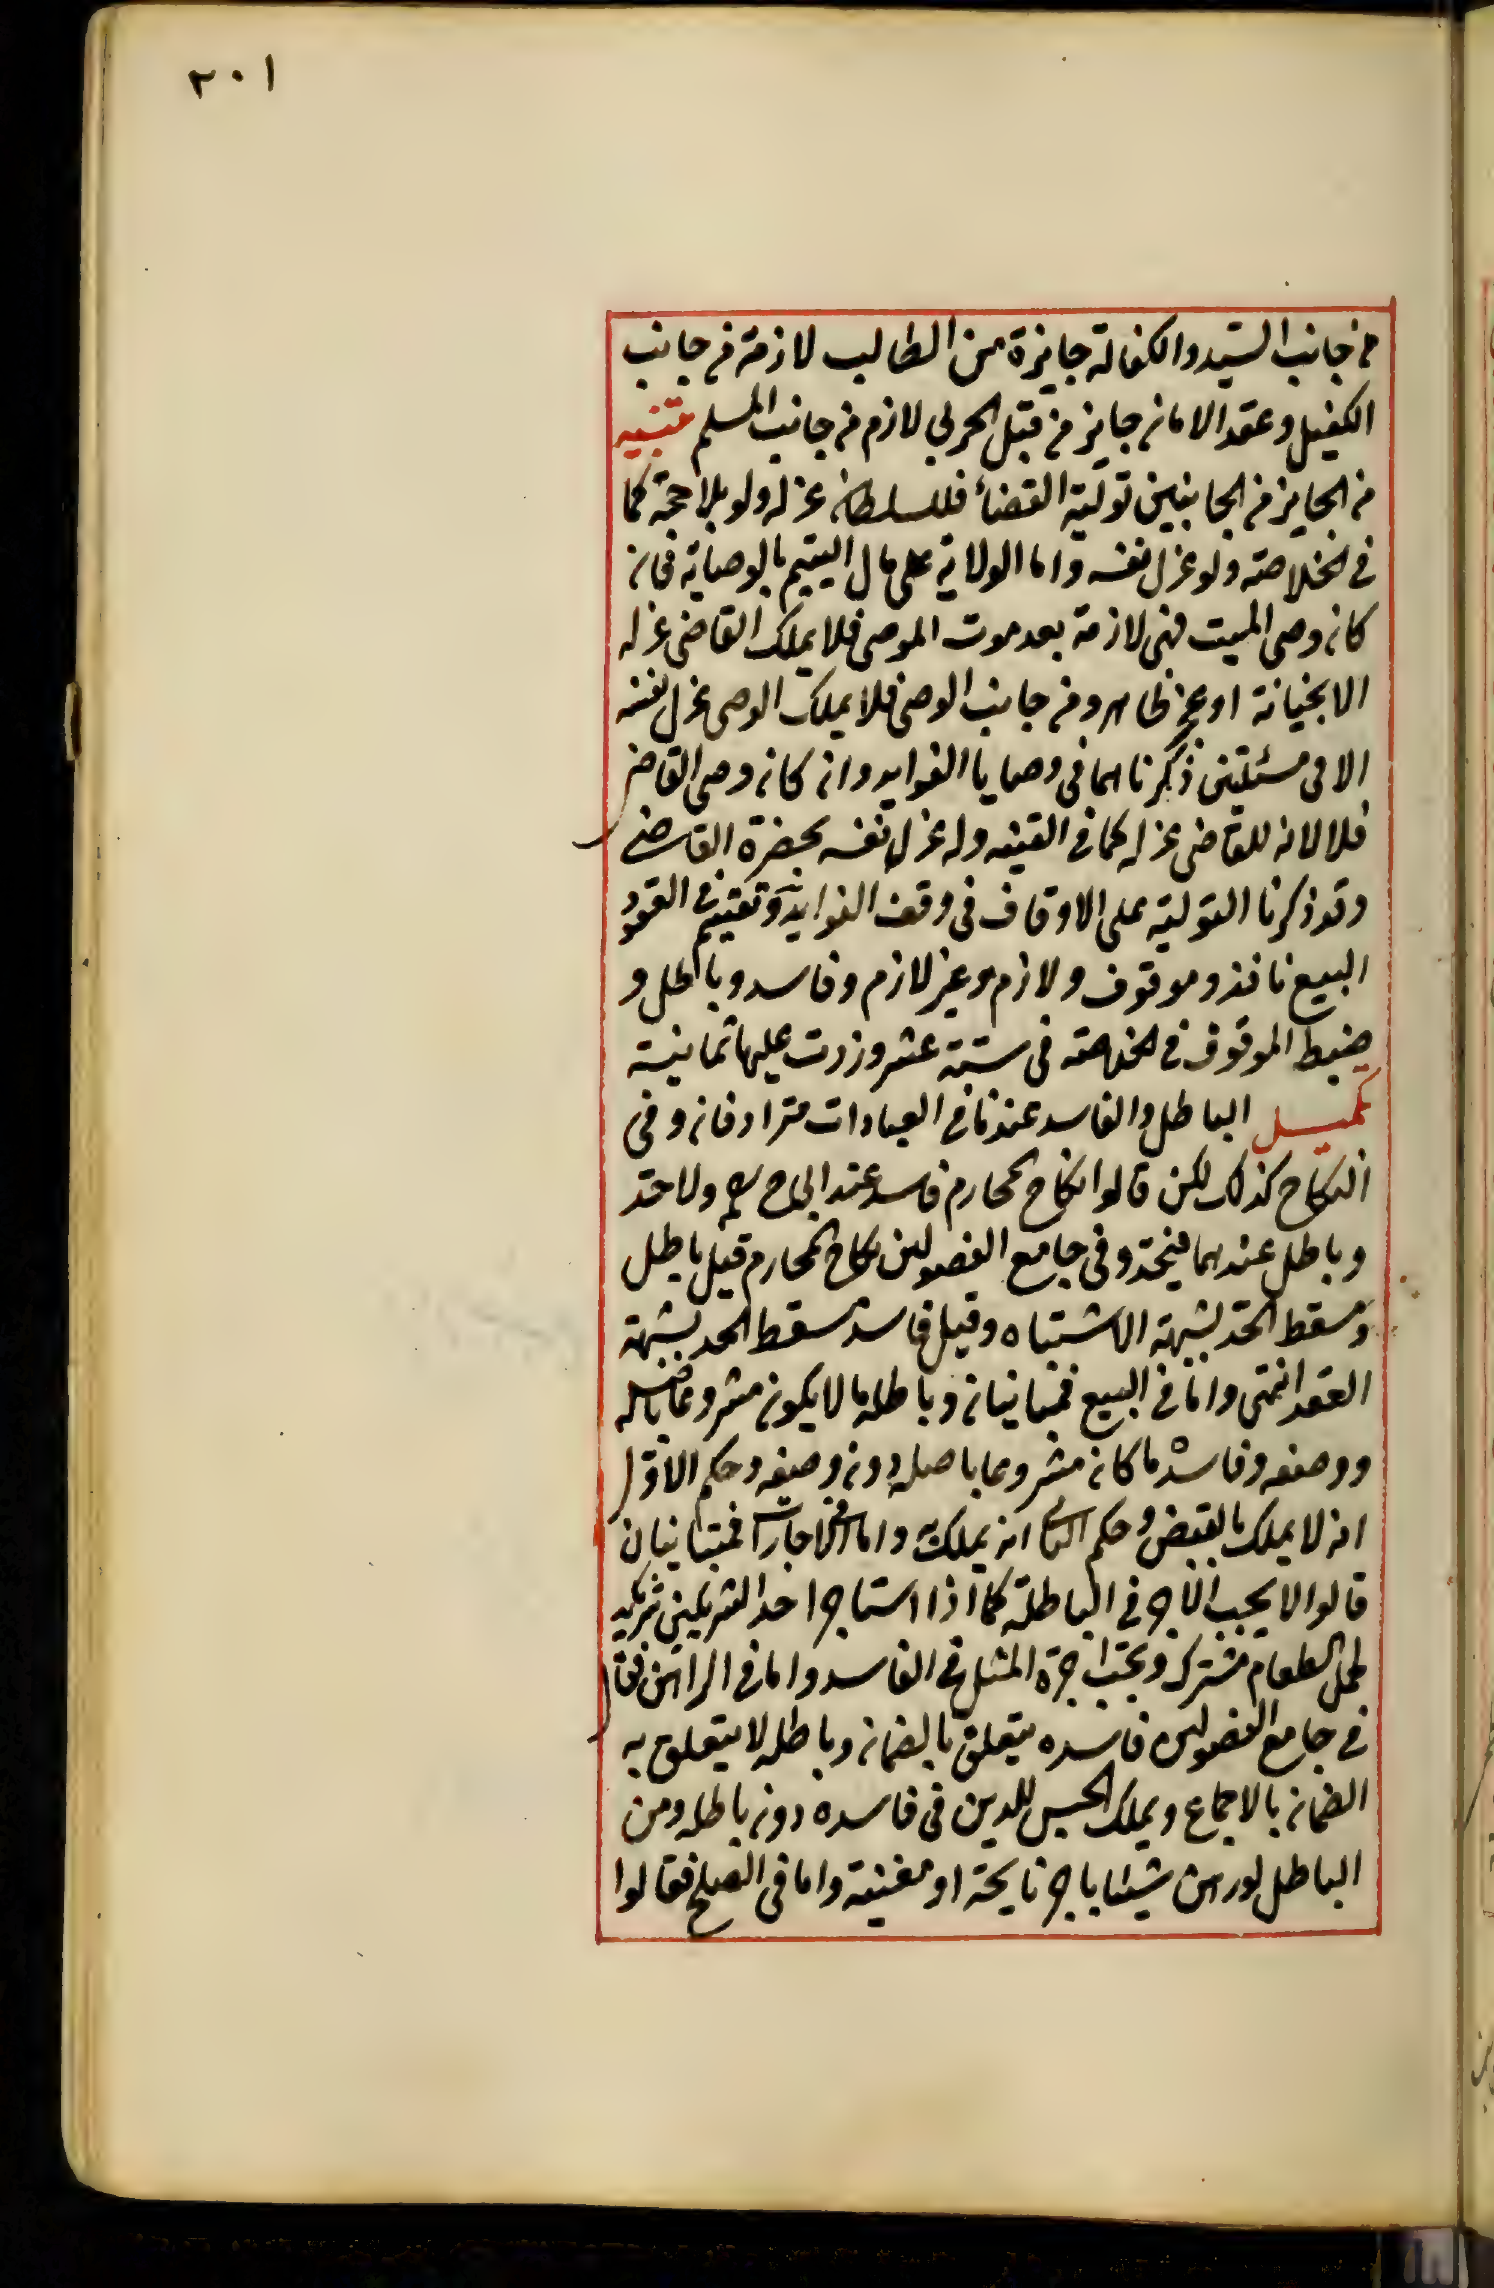 ٢٠١
من جانب السيد والكفالة جايزة من الطالب لازمة من جانب
الكفيل وعقد الامان جايز من قبل الحربي لازم من جانب المسلم تنبيه
من الجايز من الجانبين تولية القضأ فللسلطان عزله ولو بلا حجة كما
في الخلاصة ولو عزل نفسه واما الولاية على مال اليتيم بالوصاية فان
كان وصى الميت فهى لازمة بعد موت الموصى فلا يملك القاضى عزله
الا بخيانة او عجز ظاهر ومن جانب الوصى فلا يملك الوصى عزل نفسه
الا في مسئلتين ذكرناهما في وصايا الفوايد وان كان وصى القاضي
فلا لان للقاضى عزله كما في القنيه وله عزل نفسه بحضرة القاضي
وقد ذكرنا التولية على الاوقاف في وقف الفوايد وتقسيم في العقود
البيع نافذ وموقوف ولازم وغير لازم وفاسد وباطل و
ضبط الموقوف في الخلاصة في ستة عشر وزدت عليها ثمانية
تكميل الباطل والفاسد عندنا في العبادات مترادفان وفي
النكاح كذلك لكن قالوا نكاح المحارم فاسد عند ابي ح رح ولا حد
وباطل عندهما فيحد وفي جامع الفصولين نكاح المحارم قيل باطل
وسقط الحد لشبهة الاشتباه وقيل فاسد وسقط الحد بشبهة
العقد انتهى واما في البيع فمتباينان وباطله ما لا يكون مشروعا باصله
ووصفه وفاسده ما كان مشروعا باصله دون وصفه وحكم الاول
انه لا يملك بالقبض وحكم الثاني انه يملك به واما في الاجارات فمتباينان
قالوا لا يجب الاجر في الباطلة كما اذا استاجر احد الشريكين شريكه
لحمل الطعام مشترك ويجب اجرة المثل في الفاسد واما في الراهن فقال
في جامع الفصولين فاسده يتعلق بالضمان وباطله لا يتعلق به
الضمان بالاجماع ويملك الحبس للدين في فاسده دون باطله ومن
الباطل لو رهن شيئا باجر نايحة او مغنية واما في الصلح فقالوا